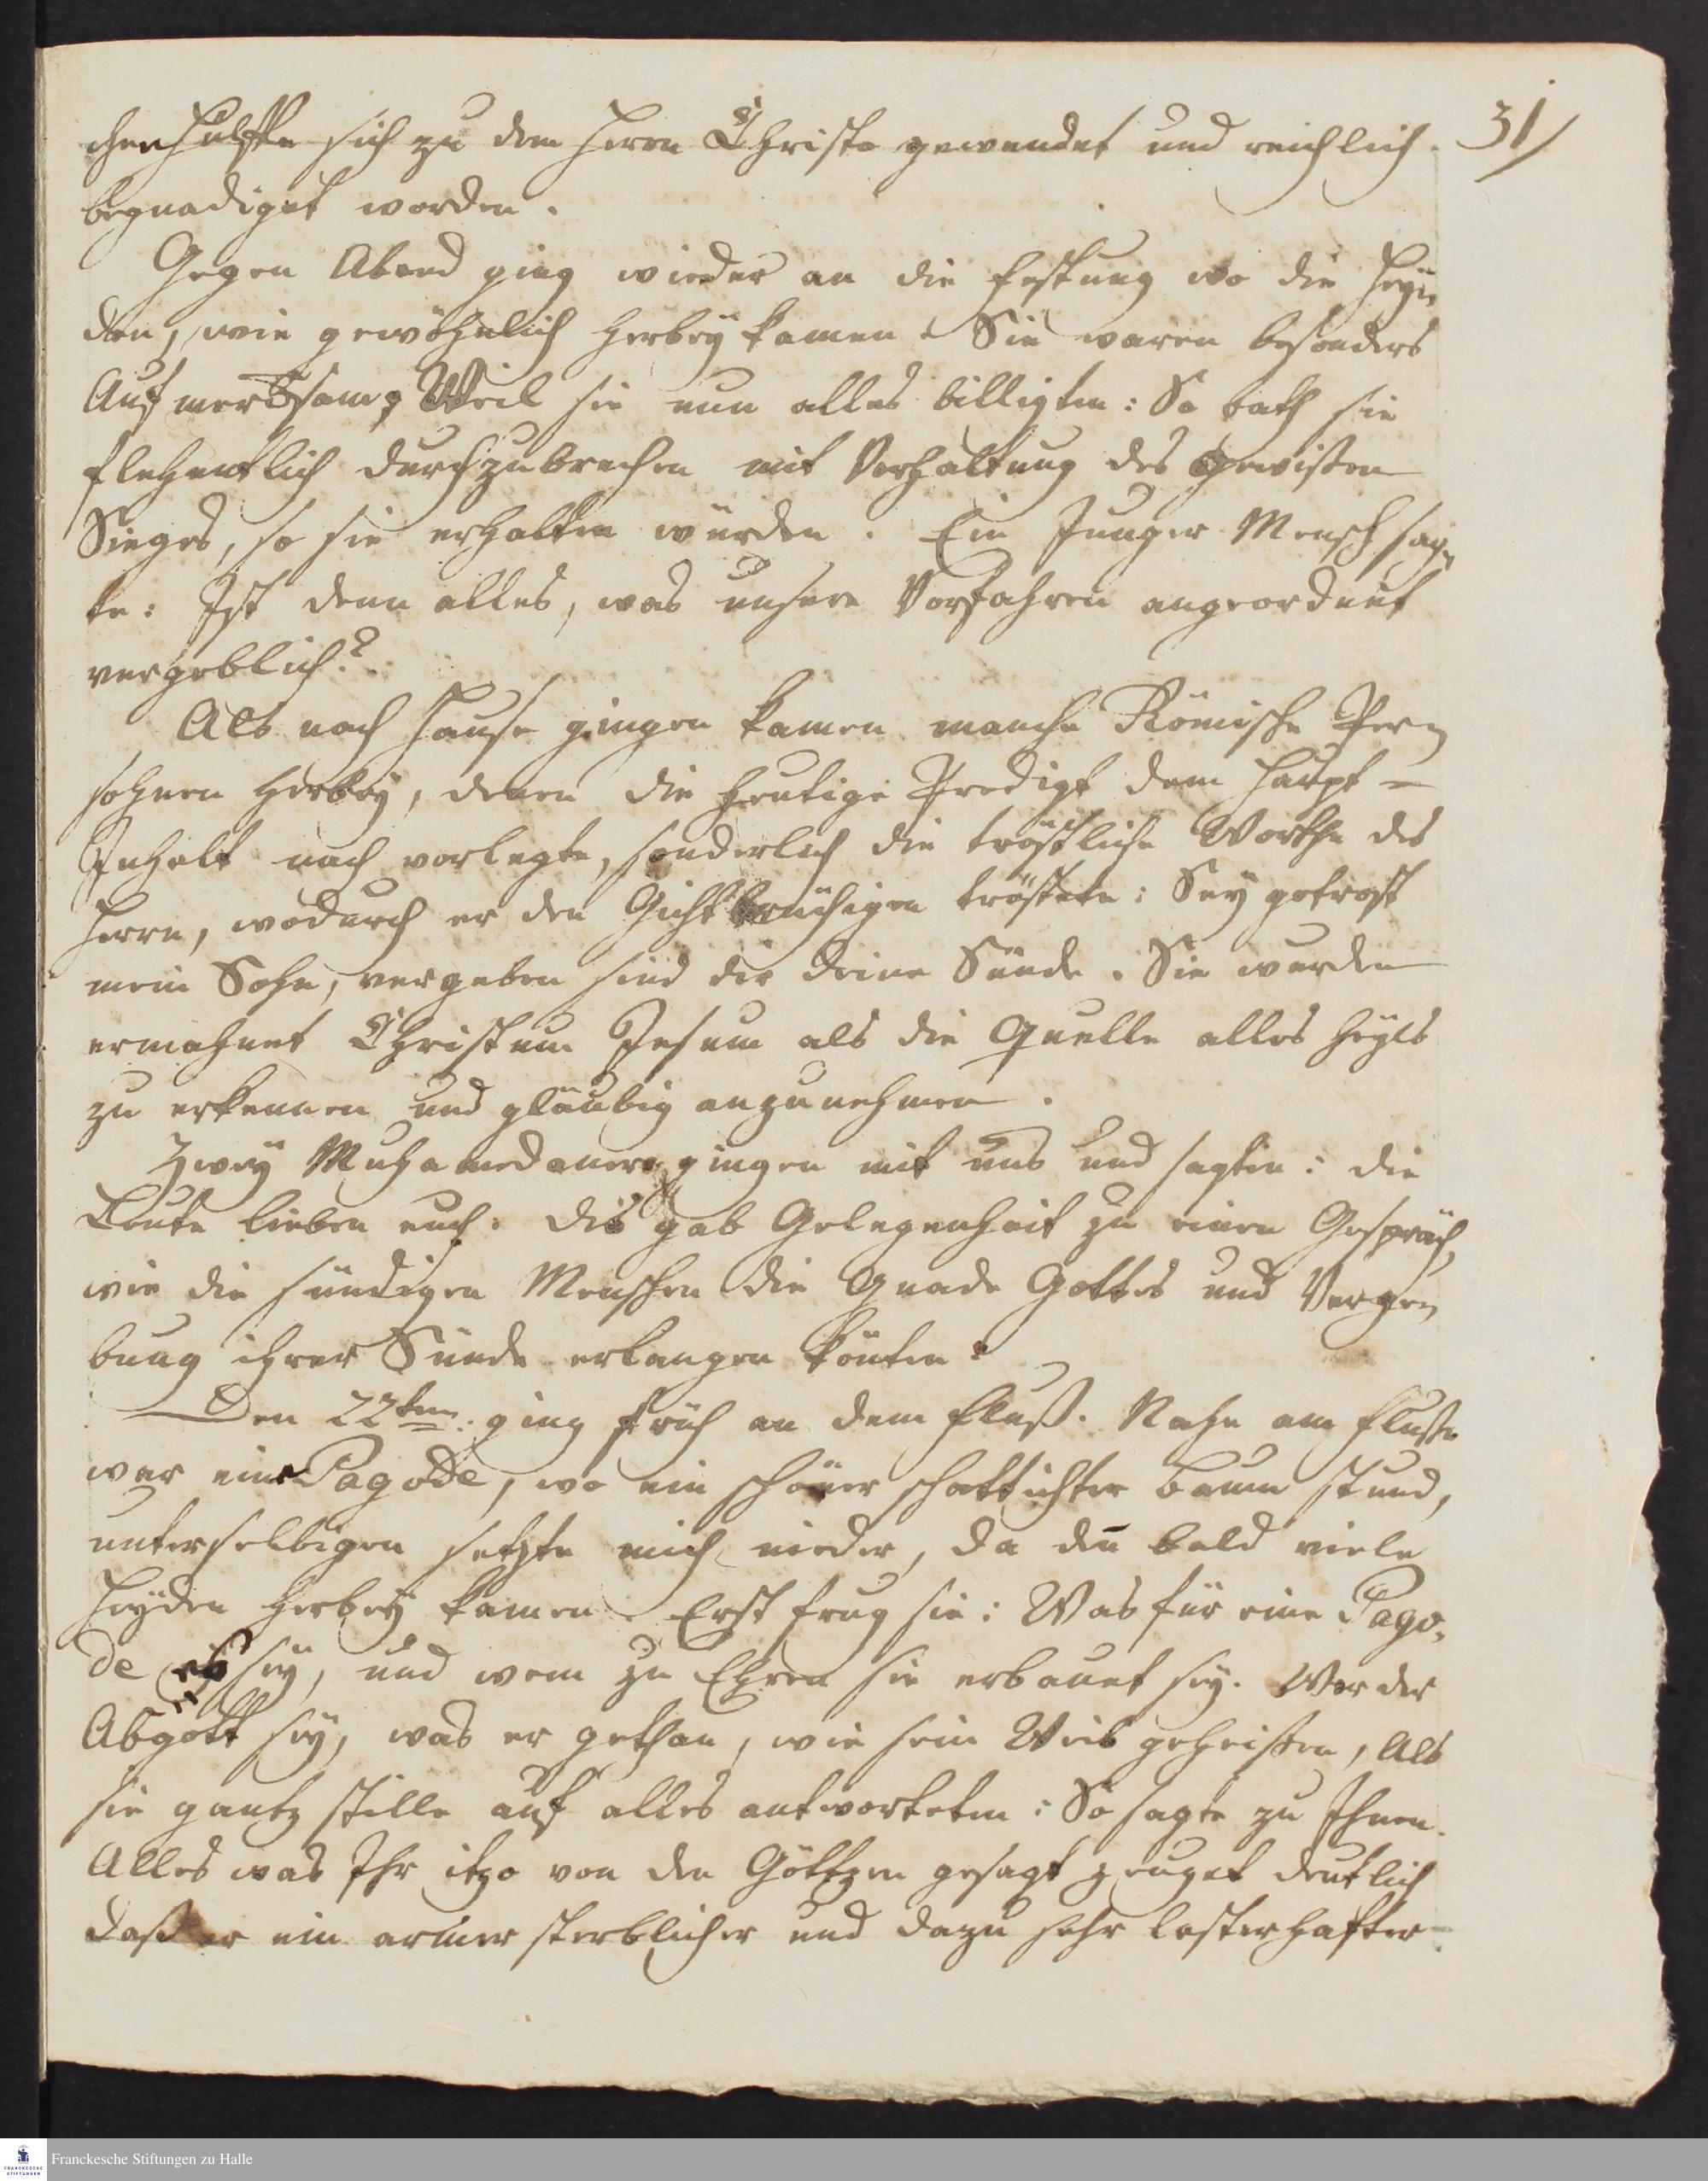 31/
chen Hülffe sich zu dem Herrn Christo gewendet und reichlich
begnadiget worden.
Gegen Abend ging wieder an die Festung wo die Hey¬
den, wie gewöhnlich herbeÿ kamen. Sie waren besonders
Aufmercksam, Weil sie nun alles billigten: So bath sie
flehentlich durchzubrechen mit Vorhaltung des Gewißen
Sieges, so sie erhalten würden. Ein Junger Mensch sag¬
te: Ist denn alles, was unsere Vorfahren angeordnet
vergeblich?
Als nach Hause gingen kamen manche Römische Per¬
sohnen herbeÿ, denen die heutige Predigt dem Haupt-
Inhalt nach vorlegte, sonderlich die tröstliche Worthe des
Herrn, wodurch er den Gichtbrüchigen tröstete: Sey getrost
mein Sohn, vergeben sind dir deine Sünde. Sie wurden
ermahnet Christum Jesum als die Quelle alles Heyls
zu erkennen und gläubig anzunehmen.
Zweÿ Muhamedaner gingen mit uns und sagten: die
Leute lieben euch. Dis gab Gelegenheit zu einen Gespräch,
wie die sündigen Menschen die Gnade Gottes und Verge¬
bung ihrer Sünde erlangen könten.
Den 22ten. ging früh an dem Fluß. Nahe am Fluße
war eine Pagode, wo ein schöner schattichter Baum stund,
unterselbigen setzte mich nieder, da deñ bald viele
Heÿden herbeÿ kamen. Erst frug sie: Was für eine Pago¬
de es seÿ, und wem zu Ehren sie erbauet seÿ. Wer der
Abgott seÿ, was er gethan, wie sein Weib geheißen, Als
sie gantz stille auf alles antworteten: So sagte zu Ihnen.
Alles was Ihr itzo von den Göttzen gesagt zeuget deutlich
daß er ein armer sterblicher und dazu sehr lasterhafter
Franckesche Stiftungen zu Halle
FRANCKESCHE
STIFTUNGEN